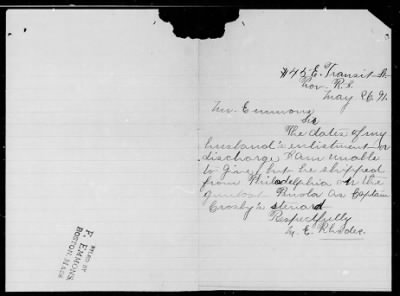 #45 E. Transit St.
Prov. R.I.
May 26. 91.
Mr. Emmons
Sir
The dates of my
husband's enlistment or
discharge I am unable
to give, but he shipped
from Philadelphia on the
gunboat Pinola as Captain
Crosby's steward
Respectfully
M. E. Rhodes.
FILED BY
F. EMMONS
BOSTON MASS